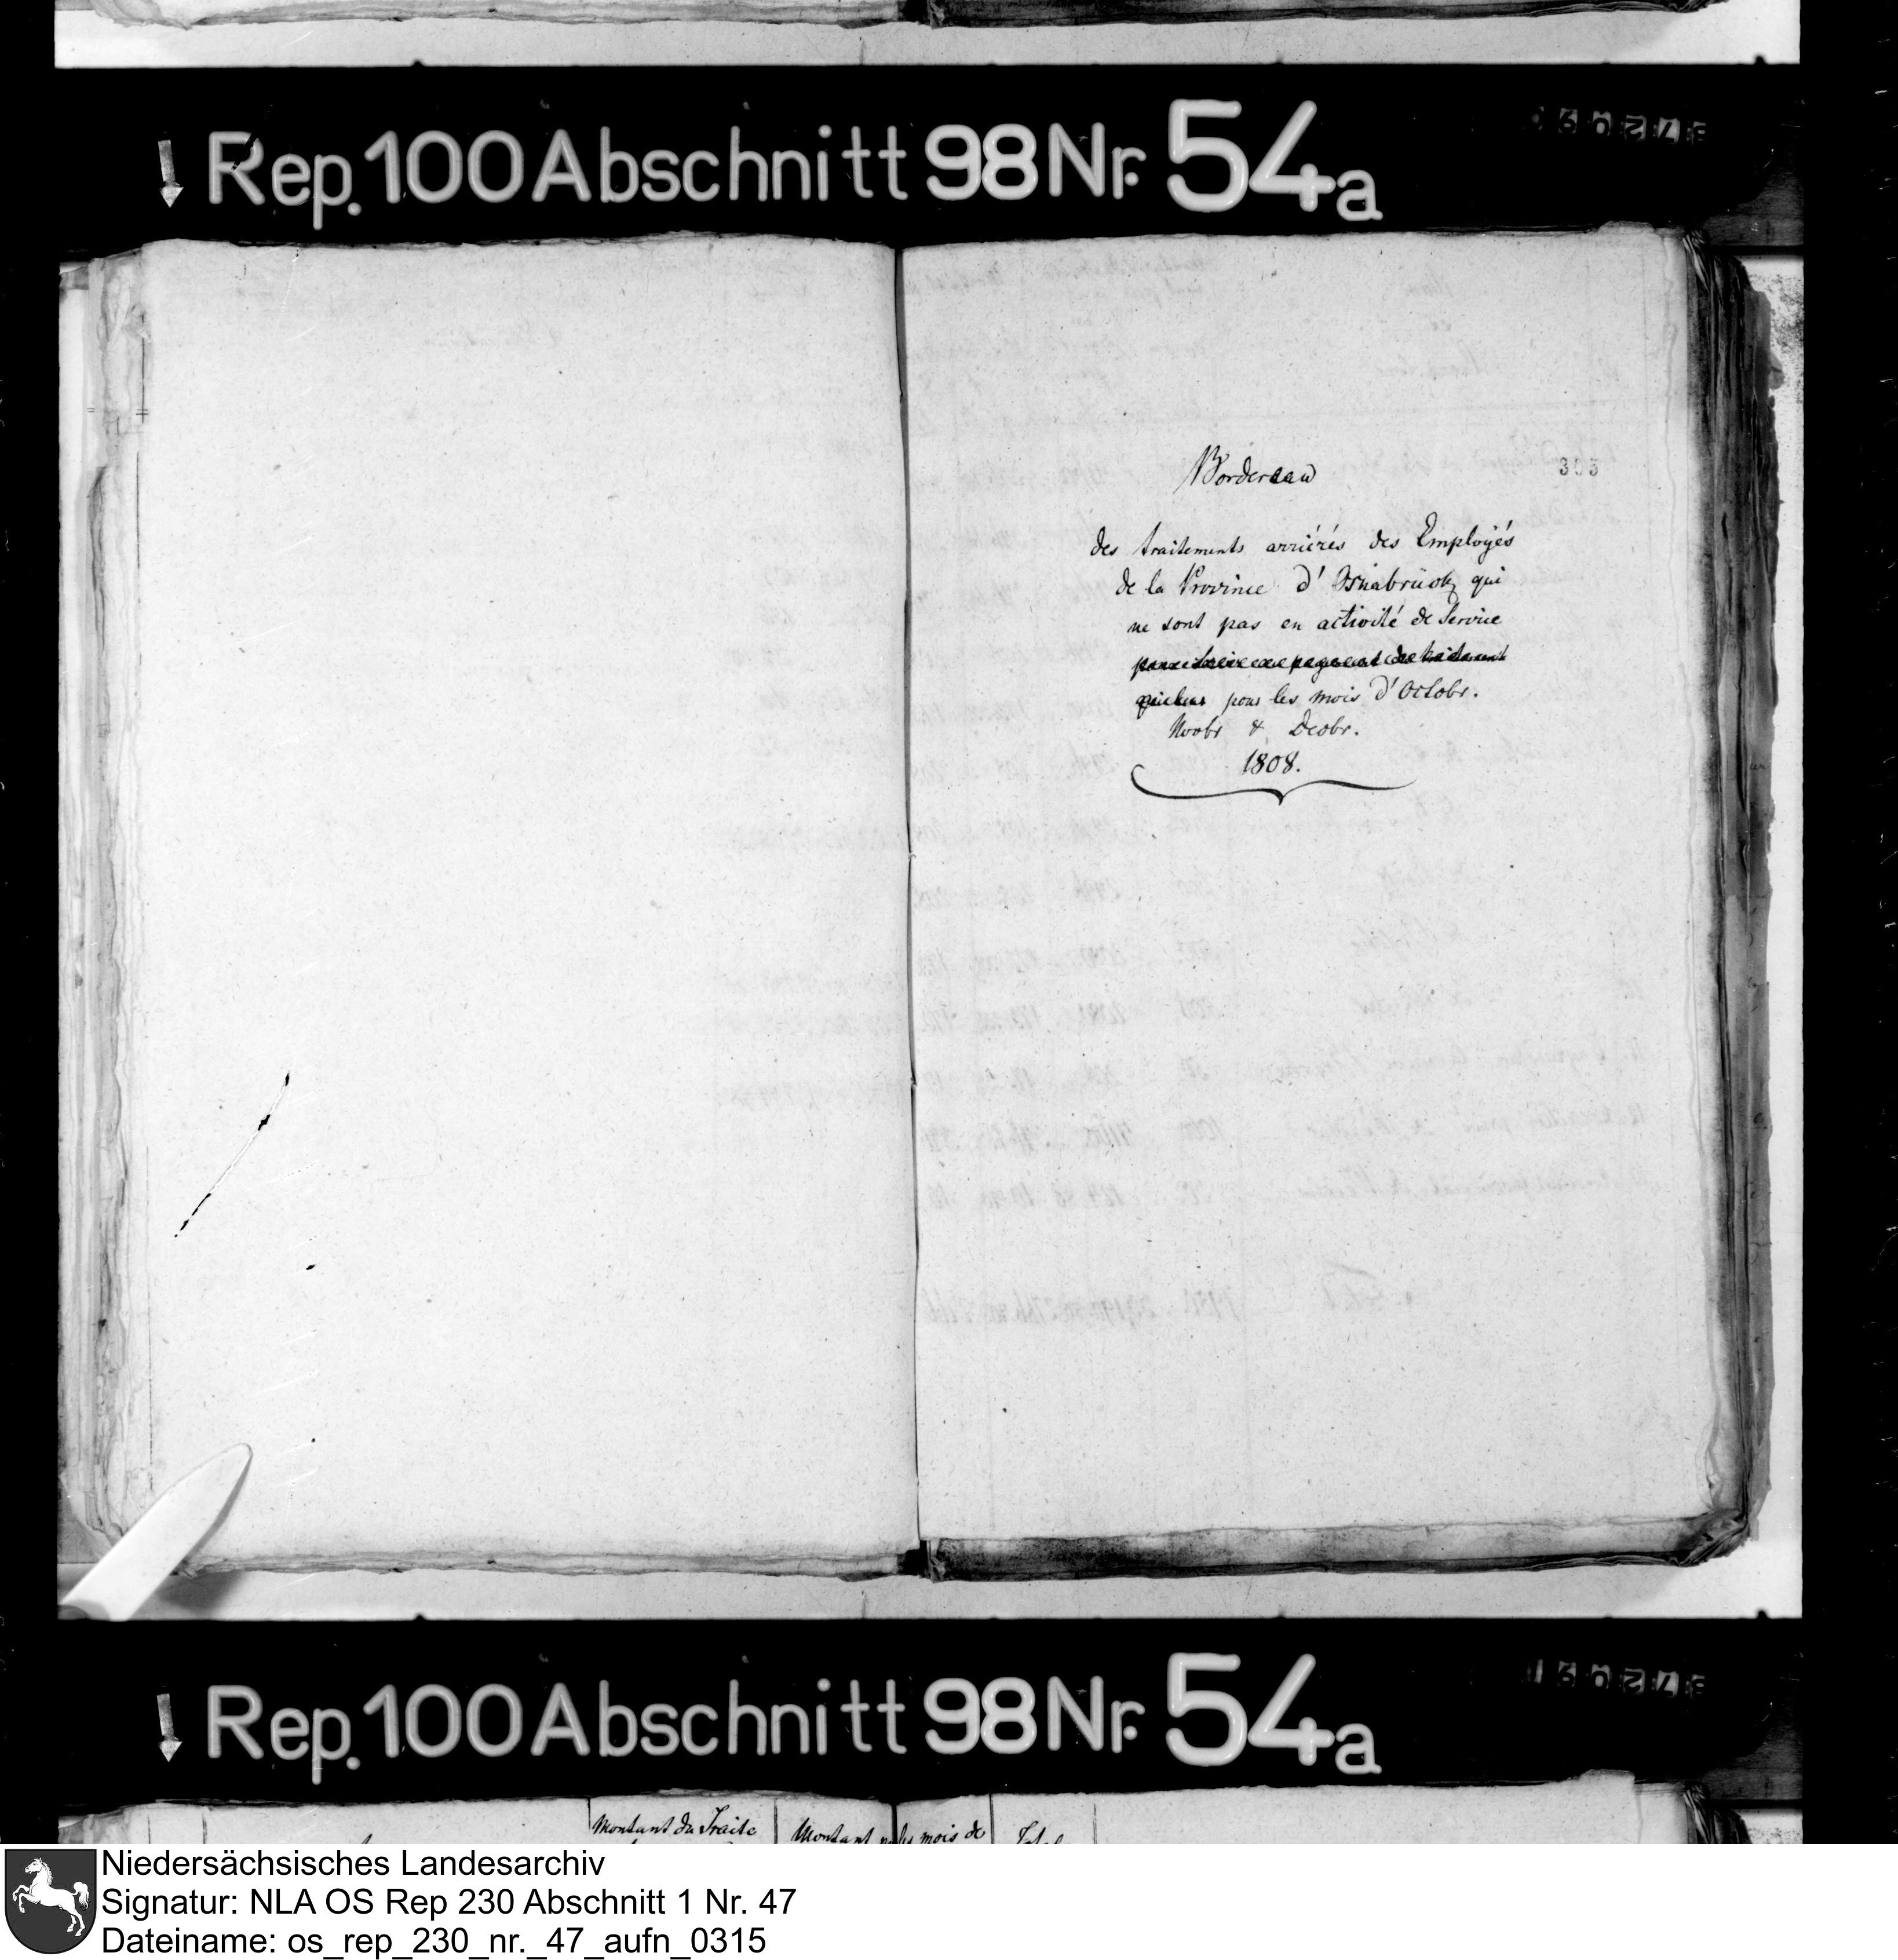 Rep. 100 Abschnitt 98 Nr. 54a
303
Bordereau
des traitements arriérés des Employés
de la Province d'Osnabrück qui
ne sont pas en activité de Service
pour les mois d'Octobr.
Novbr & Decbr.
1808.
Rep. 100 Abschnitt 98 Nr. 54a
Montant du Traite
Montant les mois de
Niedersächsisches Landesarchiv
Signatur: NLA OS Rep 230 Abschnitt 1 Nr. 47
Dateiname: os_rep_230_nr._47_aufn_0315